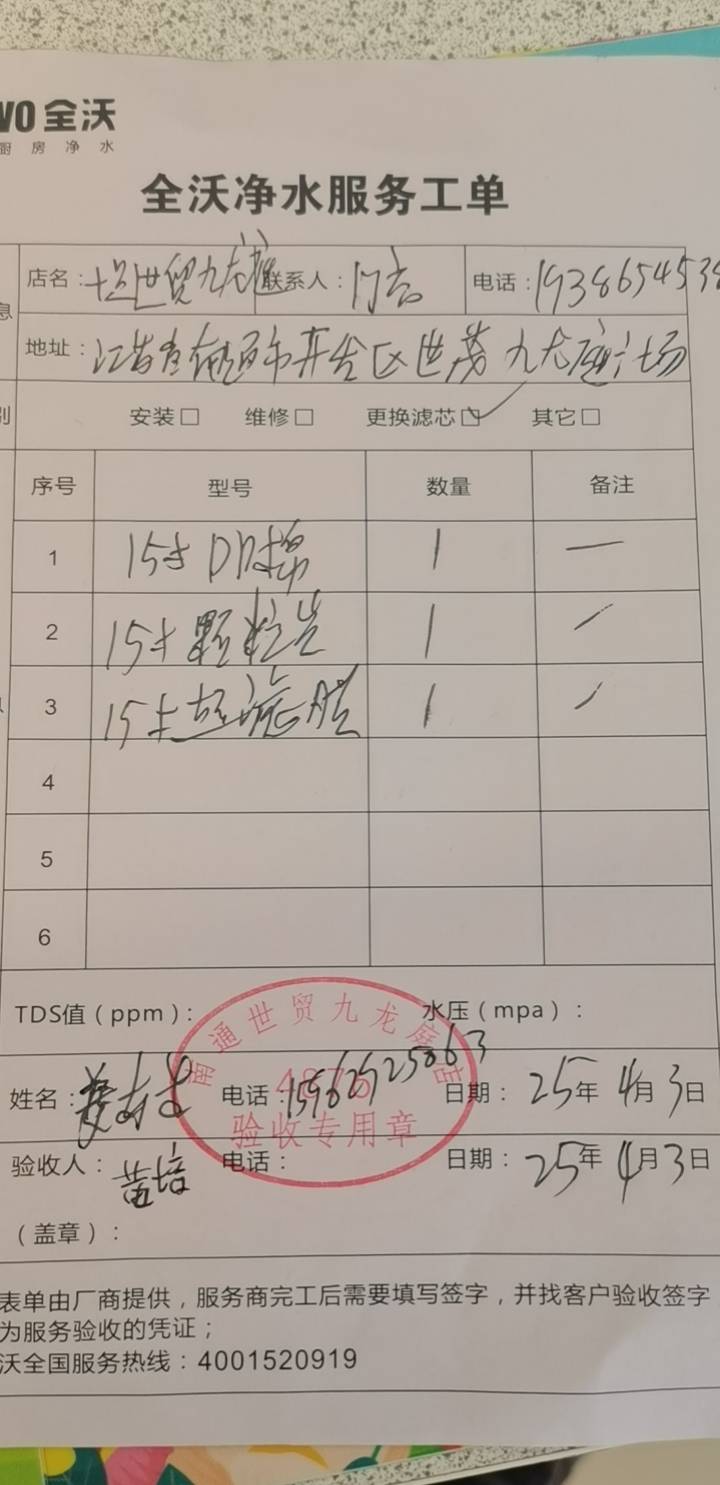 VO 全沃
厨房净水
全沃净水服务工单
息
店名：世贸九龙 联系人：门店 电话：1938654538
地址：江苏省南通市开发区世茂九龙广场
别
安装□ 维修□ 更换滤芯☑ 其它□
序号 型号 数量 备注
1 15寸PP棉 1 —
2 15寸颗粒炭 1
3 15寸超滤膜 1
4
5
6
TDS值（ppm）： 水压（mpa）：
南通世贸九龙庭店
验收专用章
姓名： 电话：15962925063 日期：25年4月3日
验收人：黄培 电话： 日期：25年4月3日
（盖章）：
表单由厂商提供，服务商完工后需要填写签字，并找客户验收签字
为服务验收的凭证；
沃全国服务热线：4001520919